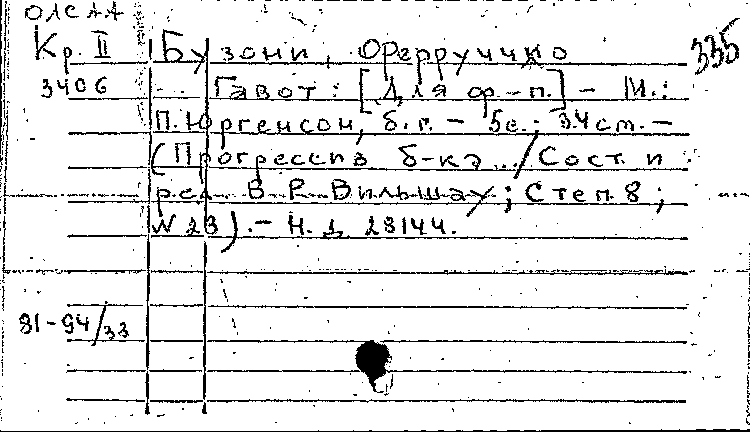 ОЛСАА
Кр. II
3406
Бузони, Ферруччио
335
Гавот: [Для ф.-п.] - М.:
П. Юргенсон, б. г. - 5с.; 34 см. -
(Прогрессив. б-ка ../Сост. и
ред. В. Р. Вильшау; Степ. 8;
N 23). - Н. д. 28144.
81-94/33